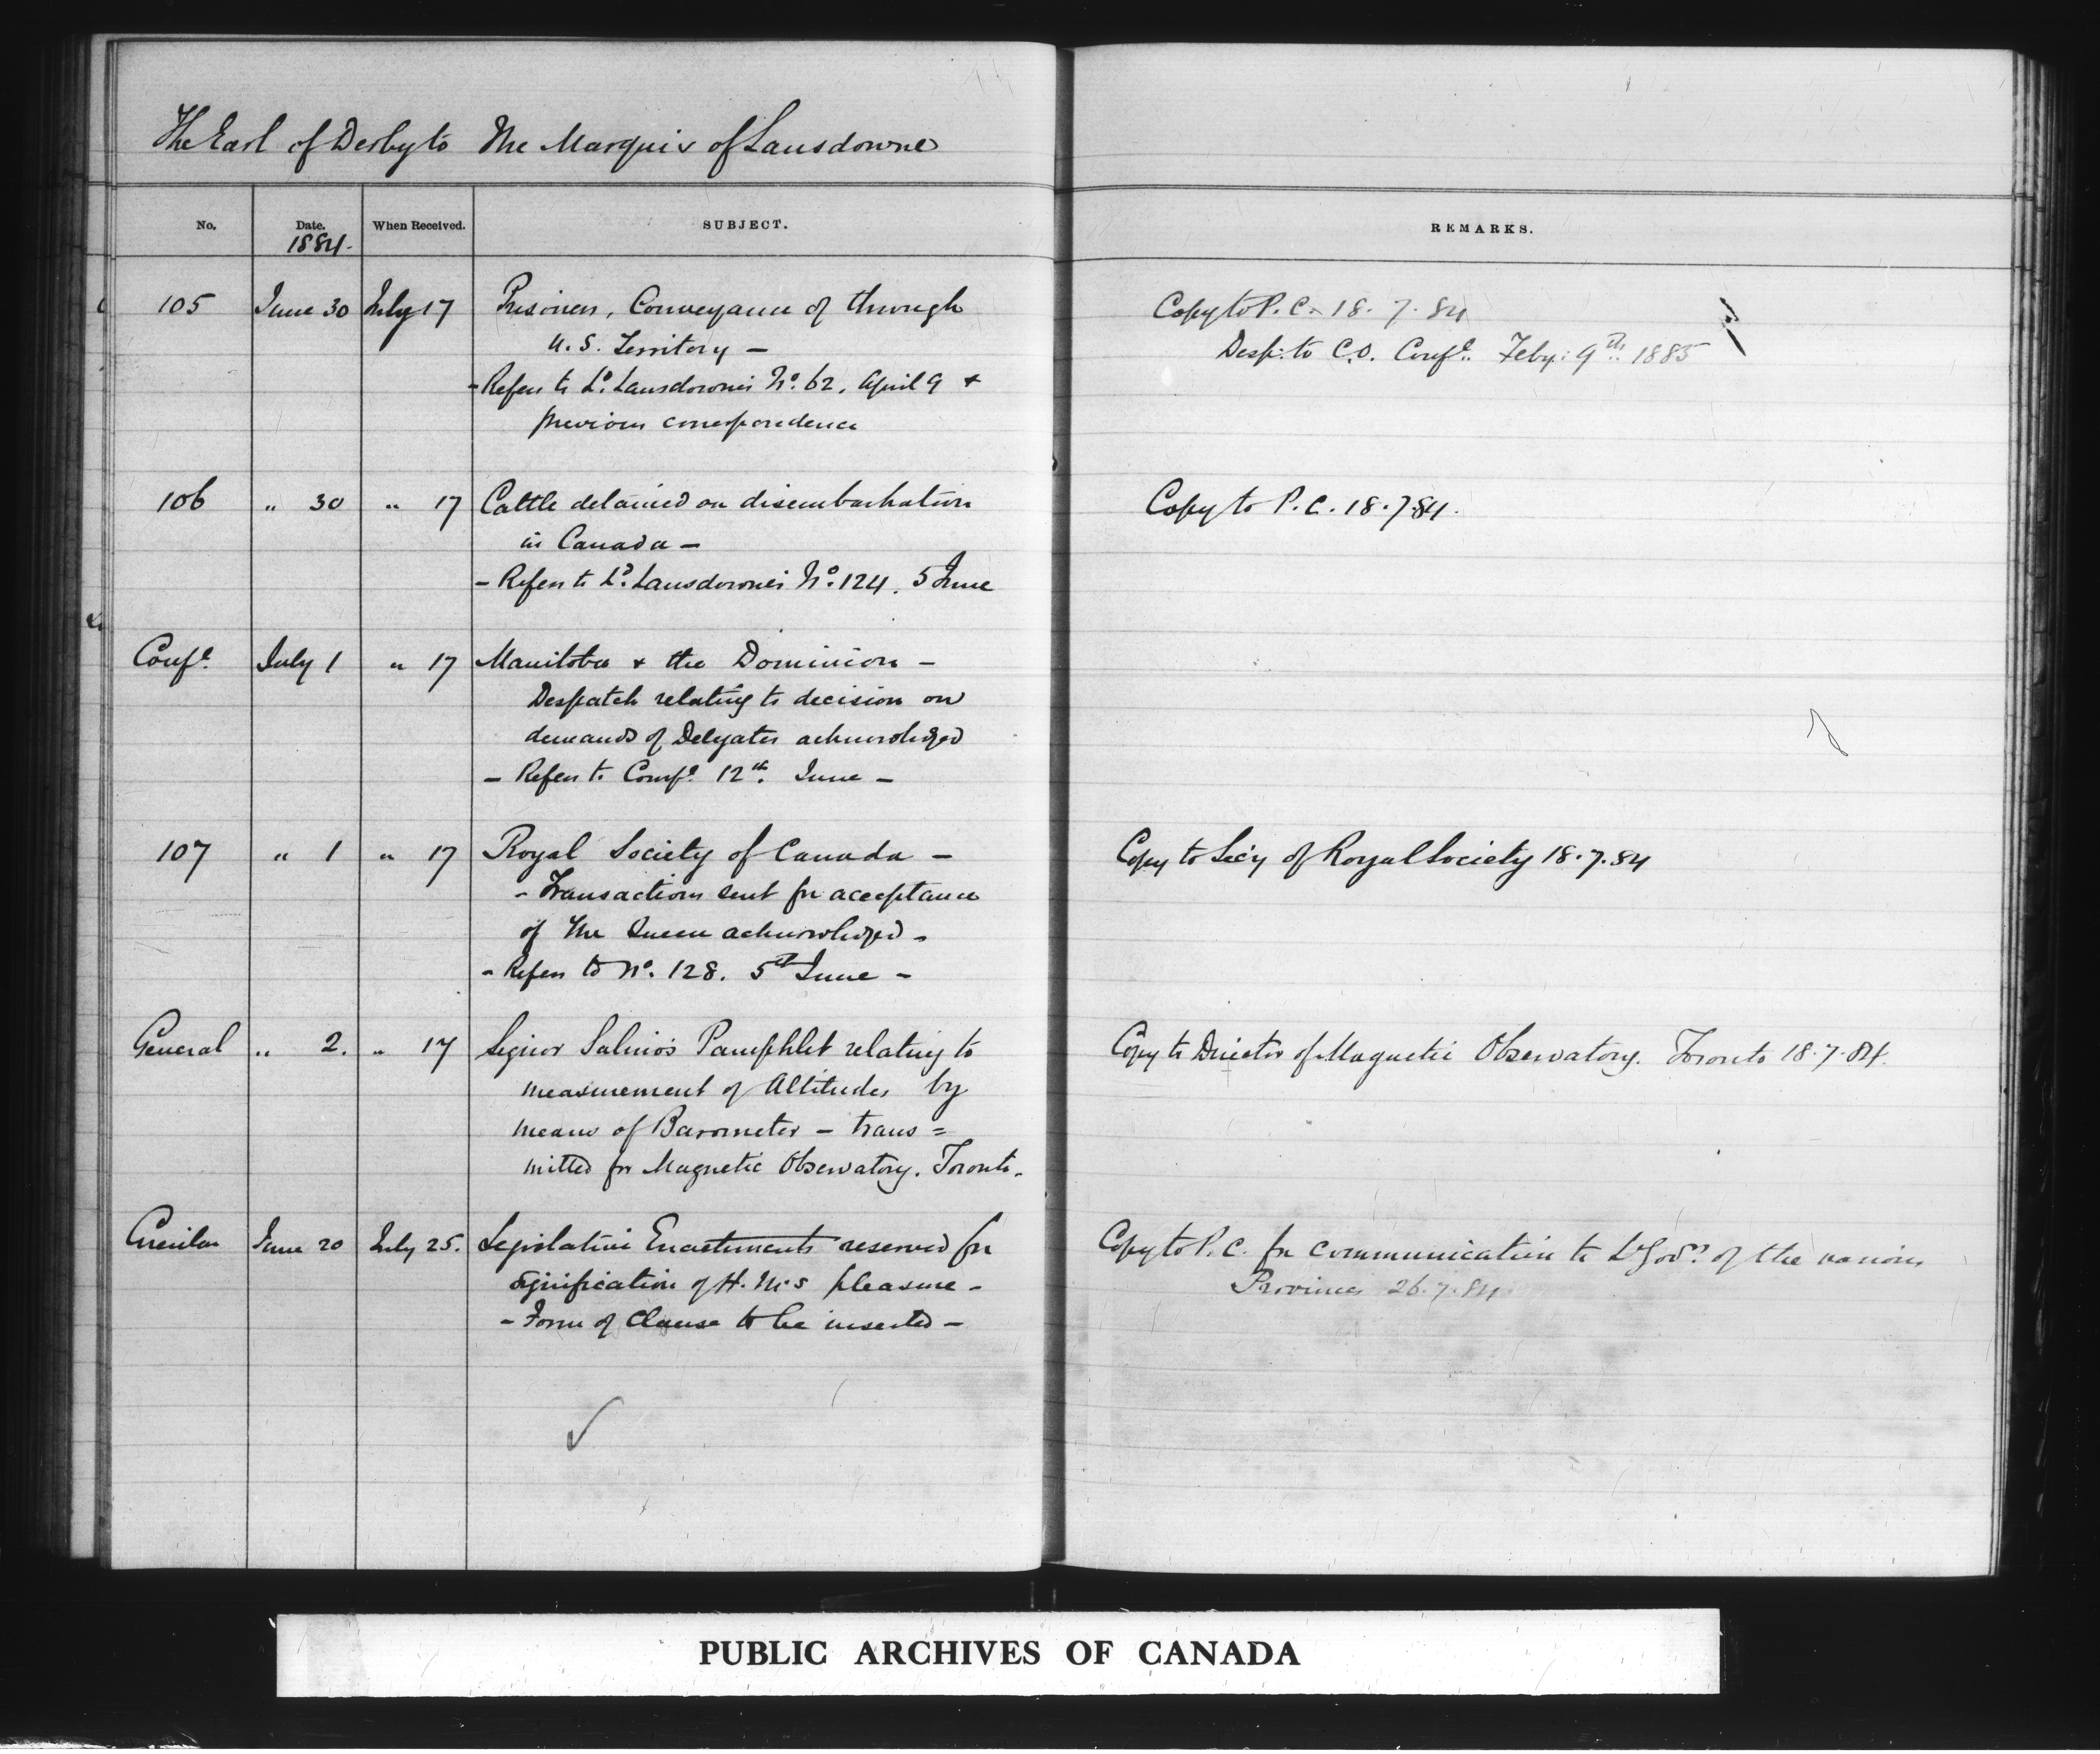 The Earl of Derby to The Marquis of Lansdowne
No. Date. When Received. SUBJECT. REMARKS.
1884.
105 June 30 July 17 Prisoners, Conveyance of through Copy to P.C. 18.7.84
U.S. Territory — Desp. to C.O. Conf.l Feby. 9th 1885
- Refers to Ld. Lansdowne's No. 62, April 9 &
previous correspondence
106 " 30 " 17 Cattle detained on disembarkation Copy to P.C. 18.7.84.
in Canada —
- Refers to Ld. Lansdowne's No. 124. 5 June
Conf.l July 1 " 17 Manitoba & the Dominion —
Despatch relating to decision on
demands of Delegates acknowledged
- Refers to Conf.l 12th. June —
107 " 1 " 17 Royal Society of Canada — Copy to Sec'y of Royal Society 18.7.84
- Transactions sent for acceptance
of The Queen acknowledged -
- Refers to No. 128. 5th June -
General " 2. " 17 Signor Salino's Pamphlet relating to Copy to Director of Magnetic Observatory. Toronto 18.7.84.
measurement of Altitudes by
means of Barometer — trans=
mitted for Magnetic Observatory. Toronto.
Circular June 20 July 25. Legislative Enactments reserved for Copy to P.C. for communication to Lt Govrs. of the various
signification of H.M's pleasure - Provinces 26.7.84
- Form of Clause to be inserted —
PUBLIC ARCHIVES OF CANADA